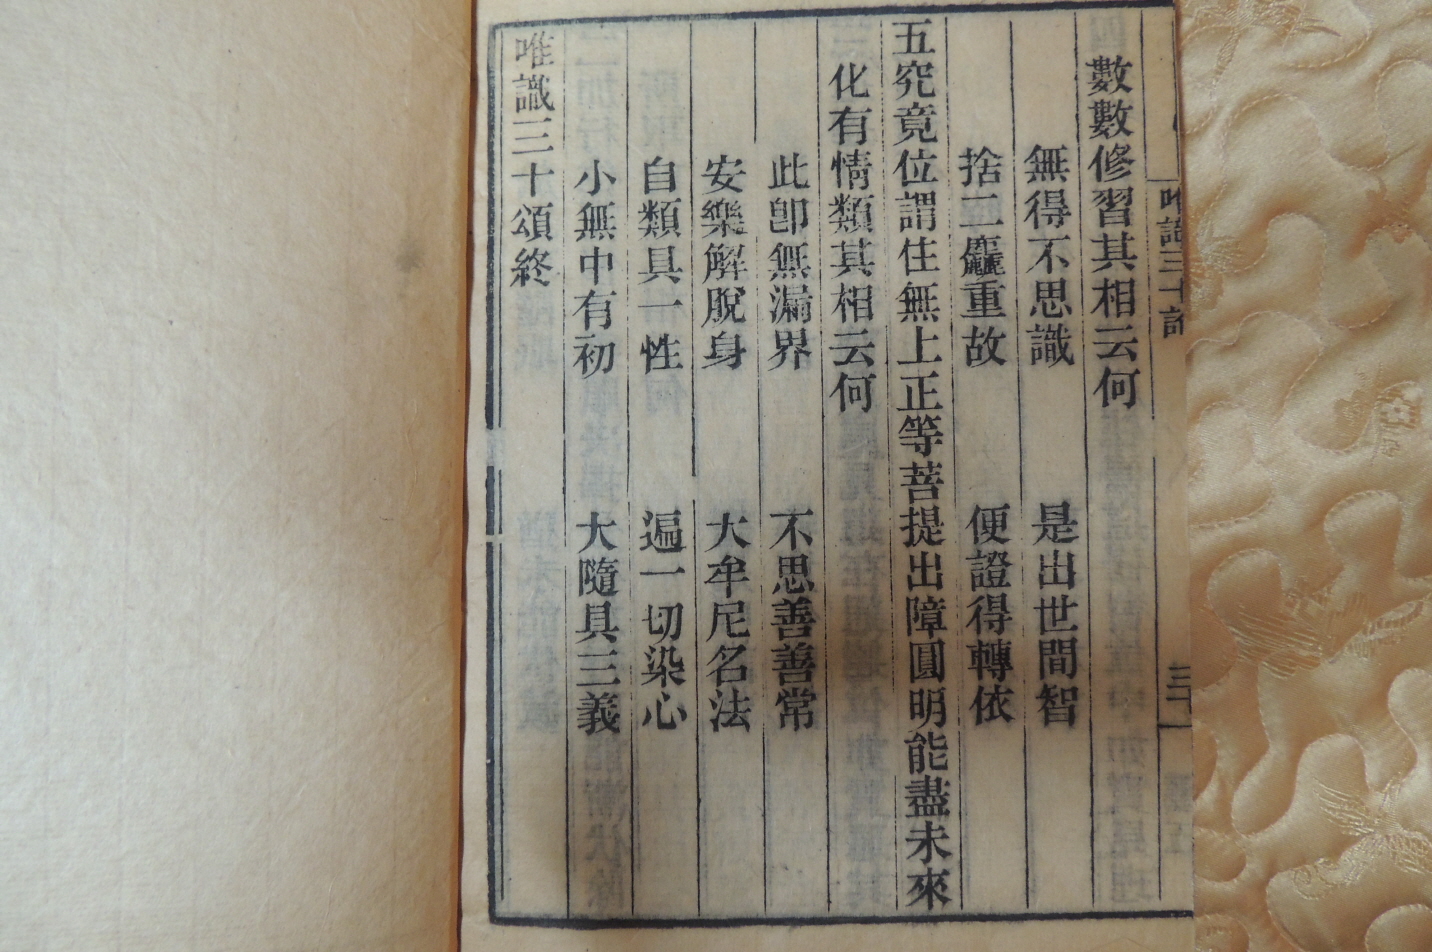 數數修習其相云何
無得不思識 是出世間智
捨二麤重故 便證得轉依
五究竟位謂住無上正等菩提出障圓明能盡未來
化有情類其相云何
此卽無漏界 不思善善常
安樂解脫身 大牟尼名法
自類具一性 遍一切染心
小無中有初 大隨具三義
唯識三十頌終